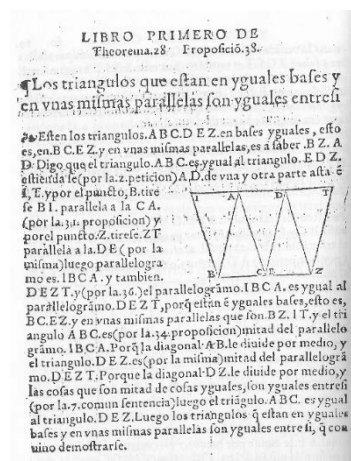 LIBRO PRIMERO DE
Theorema.28 Proposiciõ.38.
¶Los triangulos que estan en yguales bases y
en vnas mismas parallelas son yguales entresi
Esten los triangulos.A B C.D E Z.en bases yguales , esto
es,en.B C.E Z.y en vnas mismas parallelas,es a saber .B Z. A
D. Digo que el triangulo.A B C.es ygual al triangulo.E D Z.
estiendase(por la.2.peticion)A D.de vna y otra parte asta .é
I, T.y por el puncto,B.tire
se B I. parallela a la C A.
(por la.31. proposicion) y
por el puncto.Z.tirese.ZT
parallela a la.D E ( por la
misma)luego parallelogra
mo es.I B C A.y tambien.
D E Z T.y(por la.36.)el parallelográmo.I B C A. es ygual al
parallelográmo.D E Z T,porq̃ estan é yguales bases,esto es,
BC.EZ.y en vnas mismas parallelas que son.BZ.IT.y el tri
angulo A B C.es(por la.34.proposicion)mitad del parallelo
grámo.I B C A.Porq̃ la diagonal.A B.le diuide por medio, y
el triangulo.D E Z.es(por la misma)mitad del parallelográ
mo.D E Z T.Porque la diagonal.D Z.le diuide por medio,y
las cosas que son mitad de cosas yguales,son yguales entresi
(por la.7.comun sentencia)luego el triágulo.A B C. es ygual
al triangulo.D E Z.Luego los triangulos q̃ estan en yguales
bases y en vnas mismas parallelas son yguales entre si, q̃ con
uino demostrarse.
I A D T
B C E Z